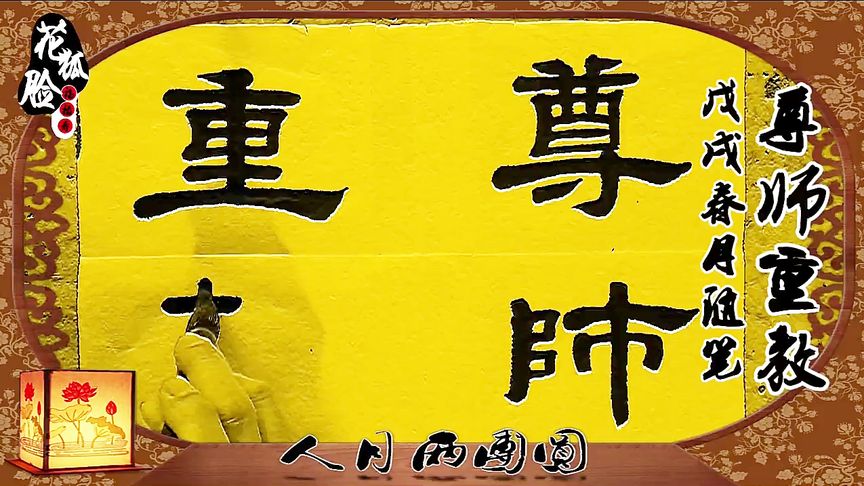 尊師
重
尊师重教
戊戌春月随笔
花狐脸
人月两團圓